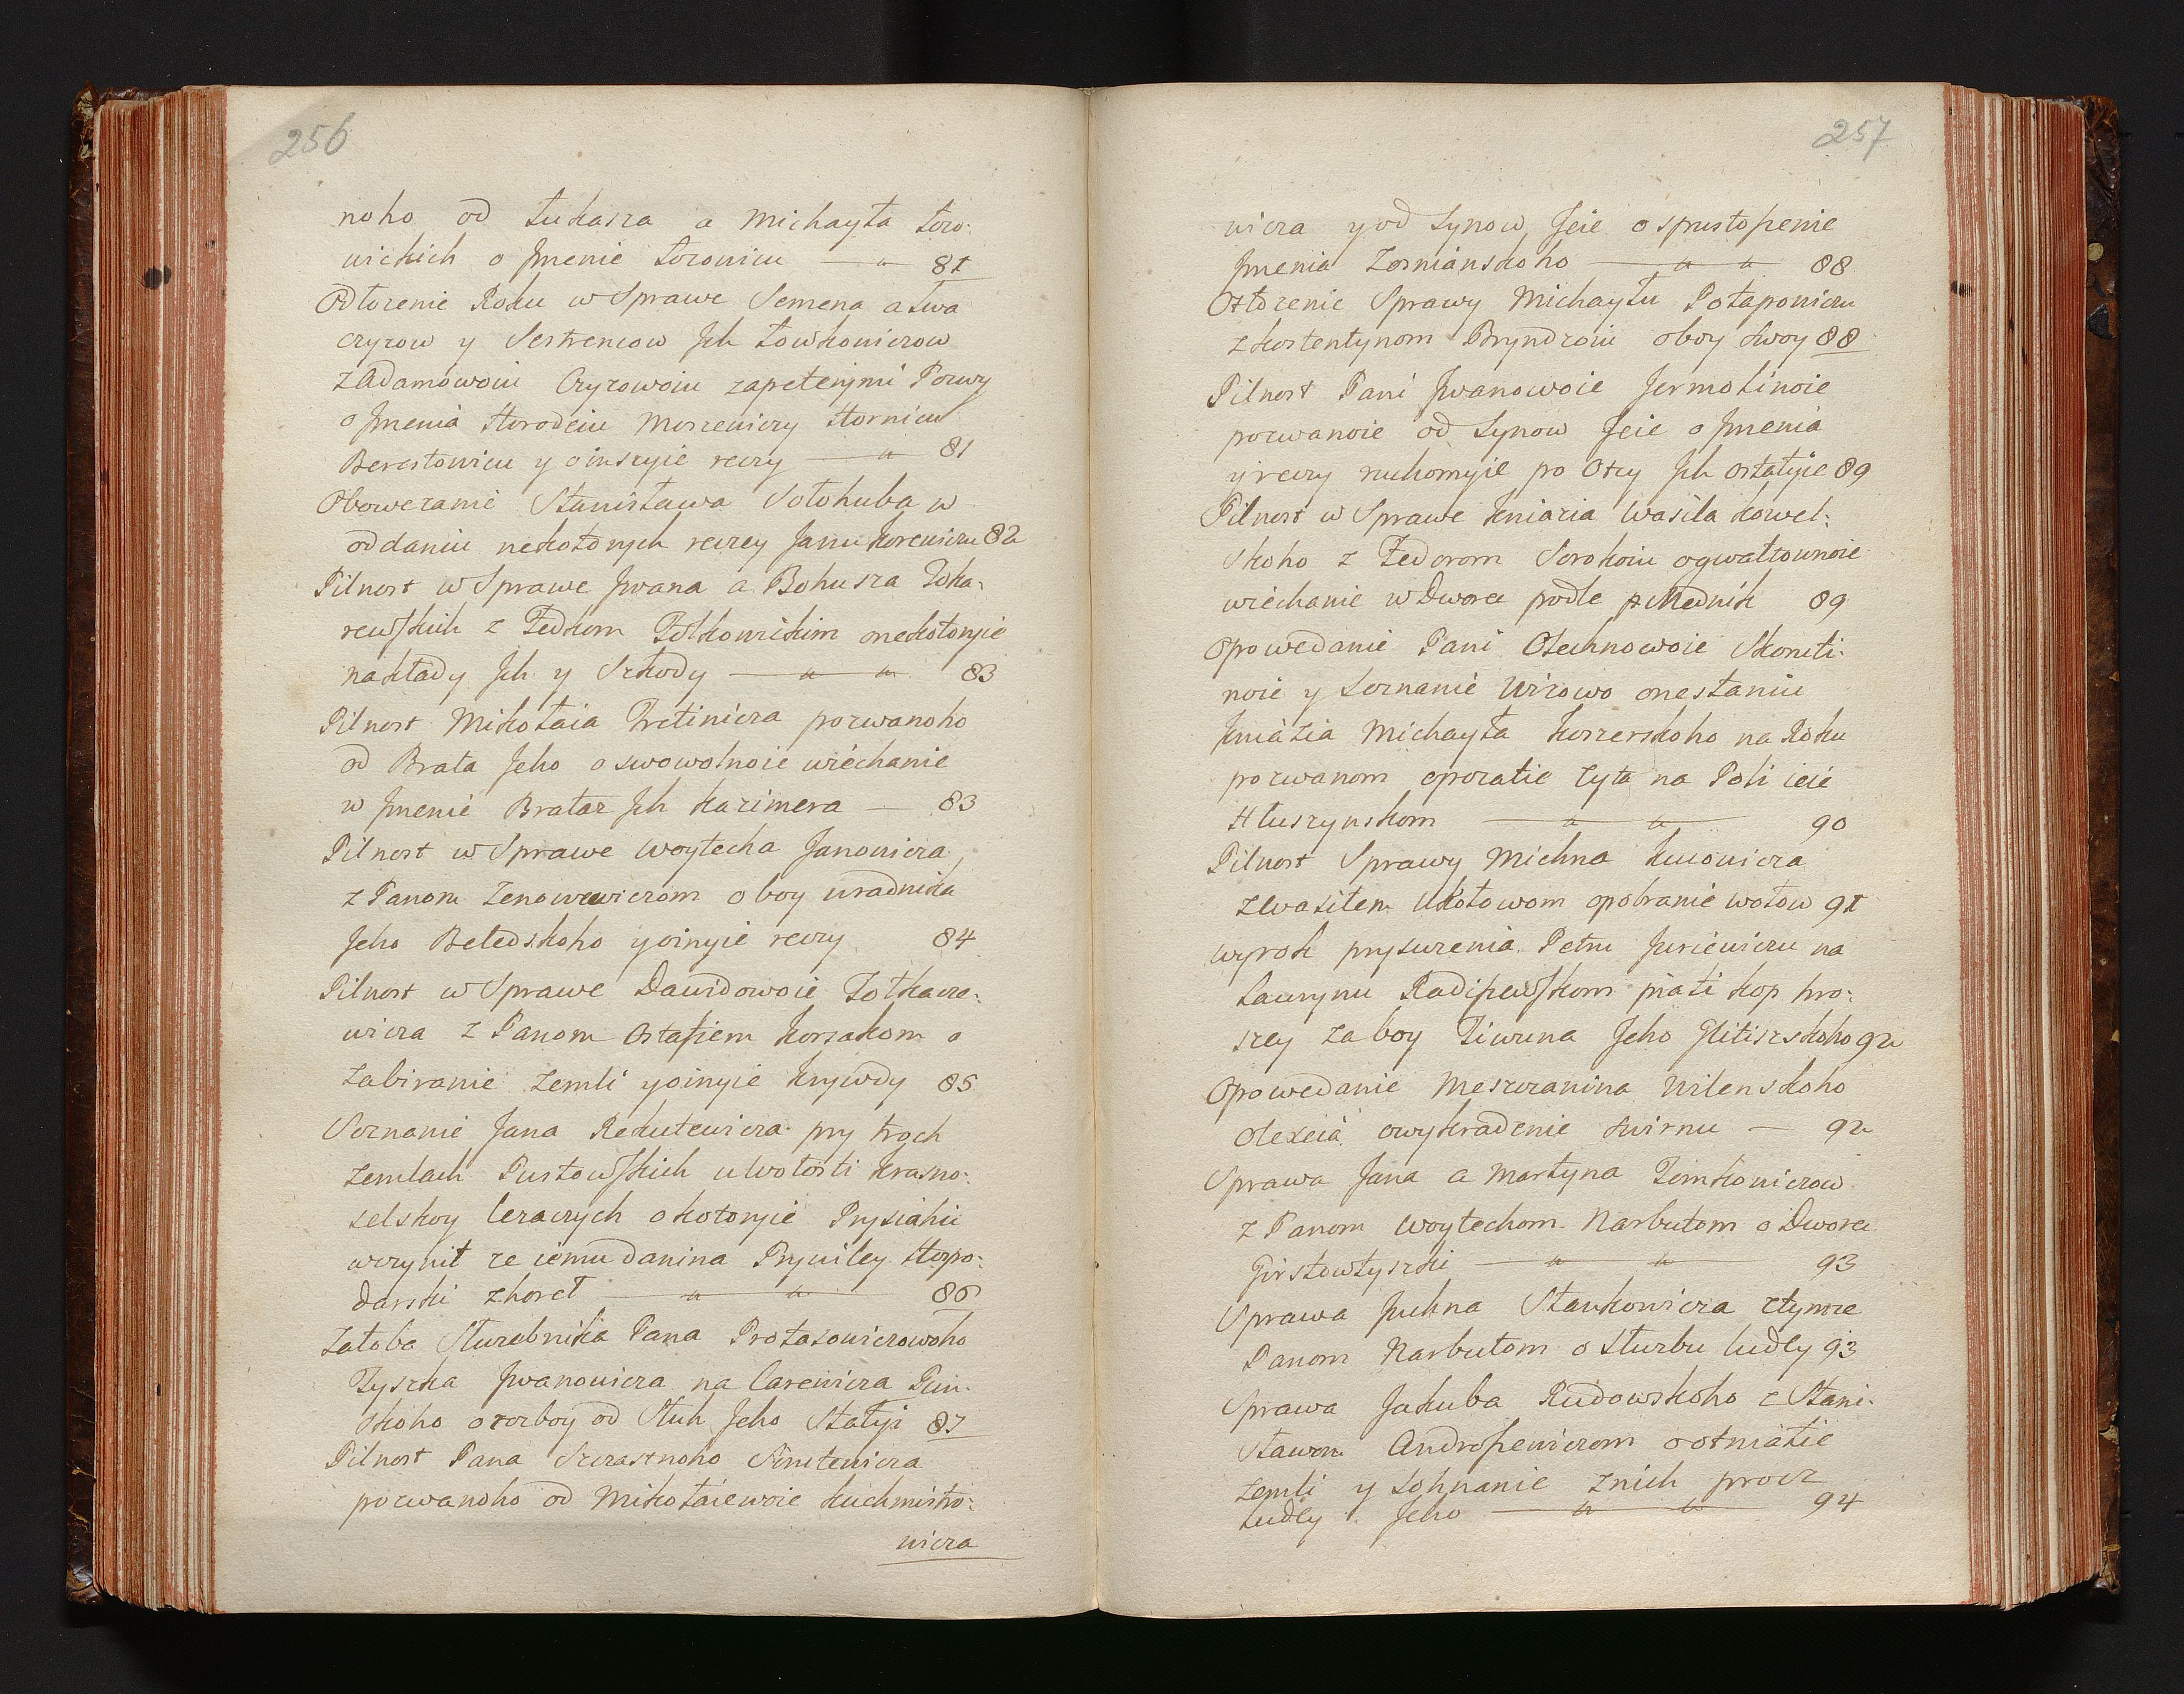 256
noho od Łukasza a Michayła Łozo-
wickich o Jmenie Łozowicu — " 81
Odłozenie Roku w Sprawe Semena a Iwa
Czyzow y Sestrencow Jch Łowkowiczow
z Adamowoiu Czyzowoiu zapetenymi Pozwy
o Jmenia Horodciu Moszewiczy Hornicu
Berestowicu y o inszyie reczy — " 81
Obowezanie Stanisława Sołohuba w
oddaniu nekotorych reczey Janu Korewiczu 82
Pilnost w Sprawe Jwana a Bohusza Toka-
rewskich z Fedkom Zołkowskim o nekotoryie
nakłady Jch y Szkody — " " 83
Pilnost Mikołaia Tretiniora pozwanoho
od Brata Jeho o swowolnoie wiéchanie
w Jmenie Brata Jch Kazimera — 83
Pilnost w Sprawe Woytecha Janowicza,
z Panom Zenowewiczom o boy uradnika
Jeho Beledskoho y o inyie reczy 84
Pilnost w Sprawe Dawidowoie Tołkacze-
wicza z Panom Ostafiem Korsakom o
Zabiranie zemli y o inyie krywdy 85
Soznanie Jana Rekutewicza pry troch
Zemlach Pustowskich u Wołosti Krasno-
selskoy lezaczych o kotoryie Prysiahu
wczynit ze iemu danina Prywiley Hospo-
darski zhoreł — " " 86
Załoba Słuzebnika Pana Protasowiczowoho
Tyszka Jwanowicza na Carewicza Pun-
skoho o rozboy od Słuh Jeho Stałyi 87
Pilnost Pana Szczastnoho Simtewicza
pozwanoho od Mikołaiewoie Kuchmistro-
wicza
257
wicza y od Synow Jeie o spustoszenie
Jmenia Zosnianskoho — " " 88
Otłozenie Sprawy Michayłu Potapowiczu
z Kostentynom Bryndzoiu o boy swoy 88
Pilnost Pani Jwanowoie Jermolinoie
pozwanoie od Synow Jeie o Jmenia
y reczy ruchomyie po Otcy Jch ostałyie 89
Pilnost w Sprawe Kniazia Wasila Kowel-
skoho z Fedorom Sorokoiu o gwałtownoie
wiéchanie w Dworec podle Mednik 89
Opowedanie Pani Olechnowoie Skomti-
noie y Soznanie Wizowo o nestaniu
Kniazia Michayła Kozzerskoho na Roku
pozwanom o pozatie Zyta na Poli ieie
Hłuszynskom — " " 90
Pilnost Sprawy Michna Kucowicza
z Wasilem Ukołowom o pobranie wołow 91
Wyrok prysuzenia Petru Jurieuiczu na
Ławrynu Radiszewskom piati kop hro-
szey za boy Tiwuna Jeho Glitiszskoho 92
Opowedanie Meszczanina Wilenskoho
Olexeia o wykradenie swirnu — 92
Sprawa Jana a Martyna Tomkowiczow
z Panom Woytechom Narbutom o Dworec
Girstowtyszki — " " 93
Sprawa Juchna Stankowicza z tymze
Panom Narbutom o Słuzbu ludey 93
Sprawa Jakuba Rudowskoho z Stani-
sławom Androszewiczom o otniatie
zemli y zohnanie z nich procz
Ludey Jeho — " " 94